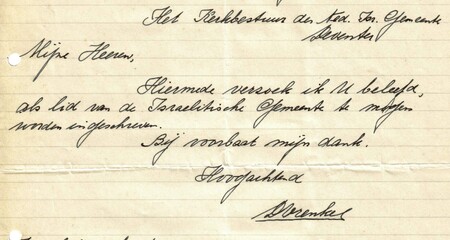 Het Kerkbestuur der Ned. Isr. Gemeente
Deventer
Mijne Heeren,
Hiermede verzoek ik U beleefd,
als lid van de Israelitische Gemeente te mogen
worden ingeschreven.
Bij voorbaat mijn dank.
Hoogachtend